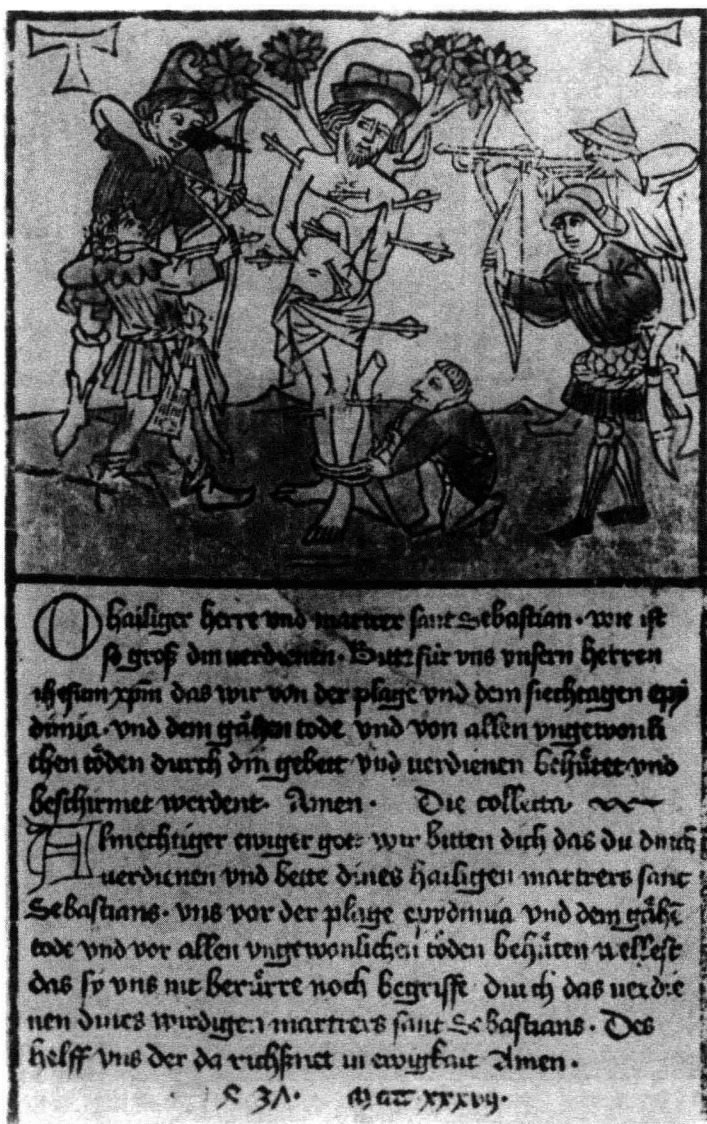 O hailiger herre vnd martrer sant Sebastian · wie ist
so groß din uerdienen · Bitt für vns vnsern herren
ihesum xpm das wir von der plage vnd dem siechtagen epÿ
dimia · vnd dem gåhen tode vnd von allen vngewonli
chen tőden durch din gebett vnd uerdienen behůtet vnd
beschirmet werdent · Amen · Die collecta ·
Almechtiger ewiger got wir bitten dich das du durch
uerdienen vnd bette dines hailigen martrers sant
Sebastians · vns vor der plage epydimia vnd dem gåhē
tode vnd vor allen vngewonlichen tőden behůten wellest
das sy vns nit berůrre noch begriffe durch das uerdie
nen dines wirdigen martrers sant Sebastians · Des
helff vns der da richßnet in ewigkait Amen ·
xxxvij ·